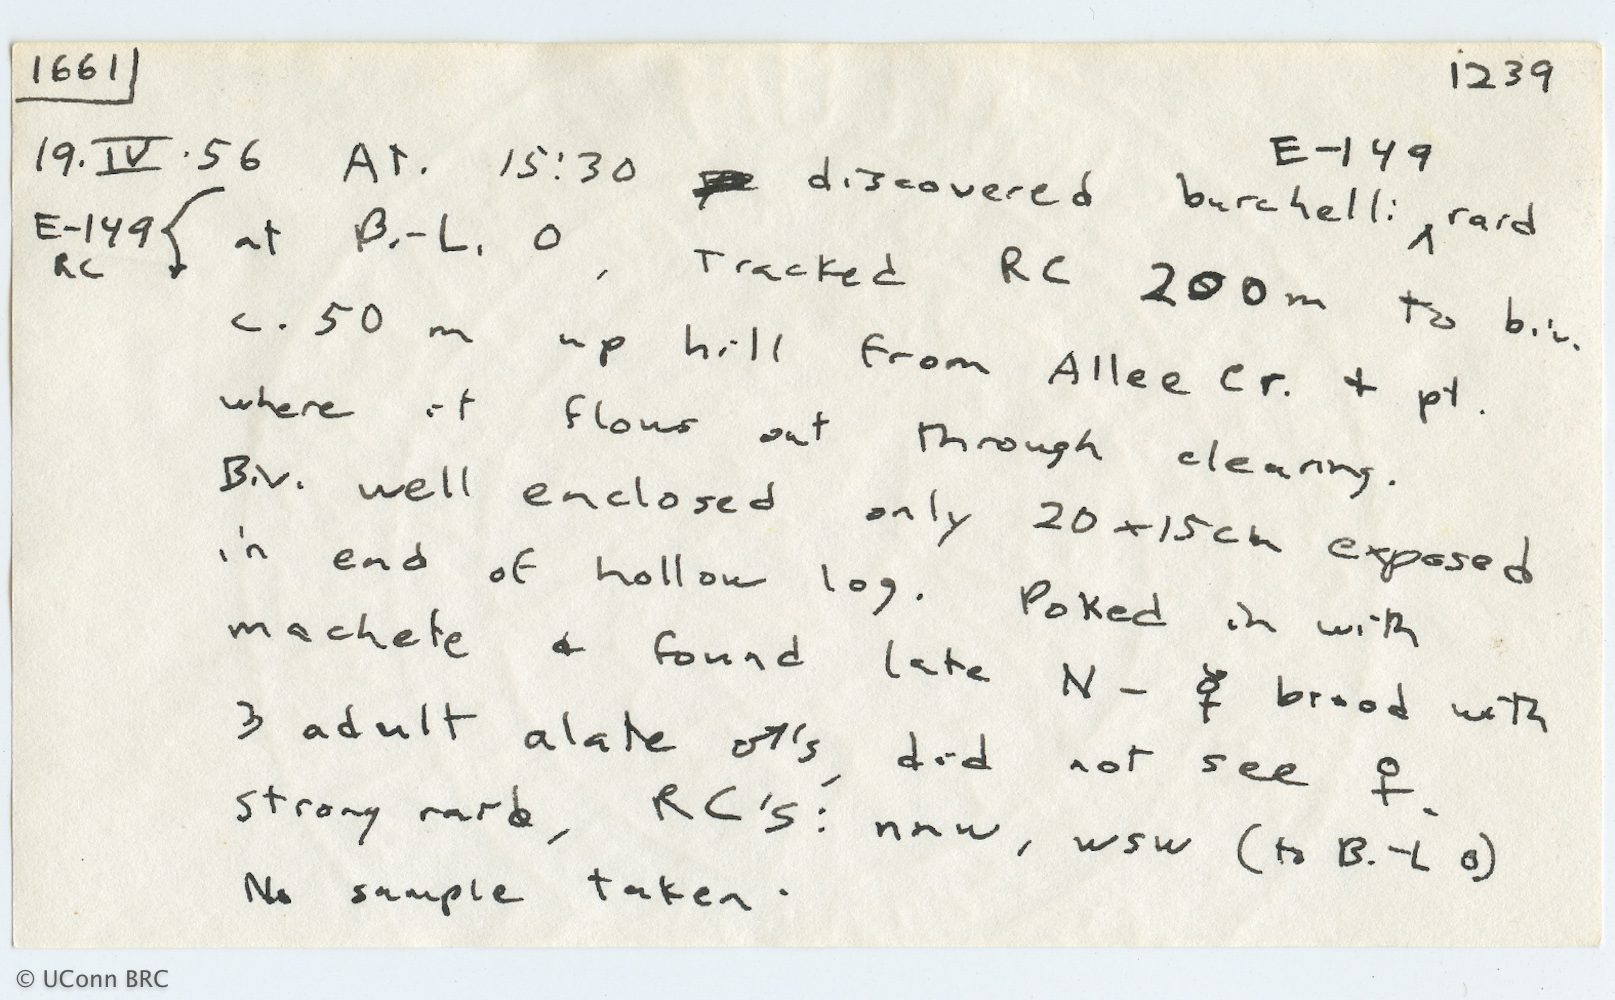 1661 1239
19.IV.56 At. 15:30 discovered burchelli ^ E-149 rard
E-149 RC { at B.-L. 0, Tracked RC 200m to biv.
c. 50 m up hill from Allee Cr. + pt.
where it flows out through clearing.
Biv. well enclosed only 20x15cm exposed
in end of hollow log. Poked in with
machete & found late N - ☿ brood with
3 adult alate ♂'s, did not see ♀.
strong rard, RC's: nnw, wsw (to B.-L 0)
No sample taken.
© UConn BRC